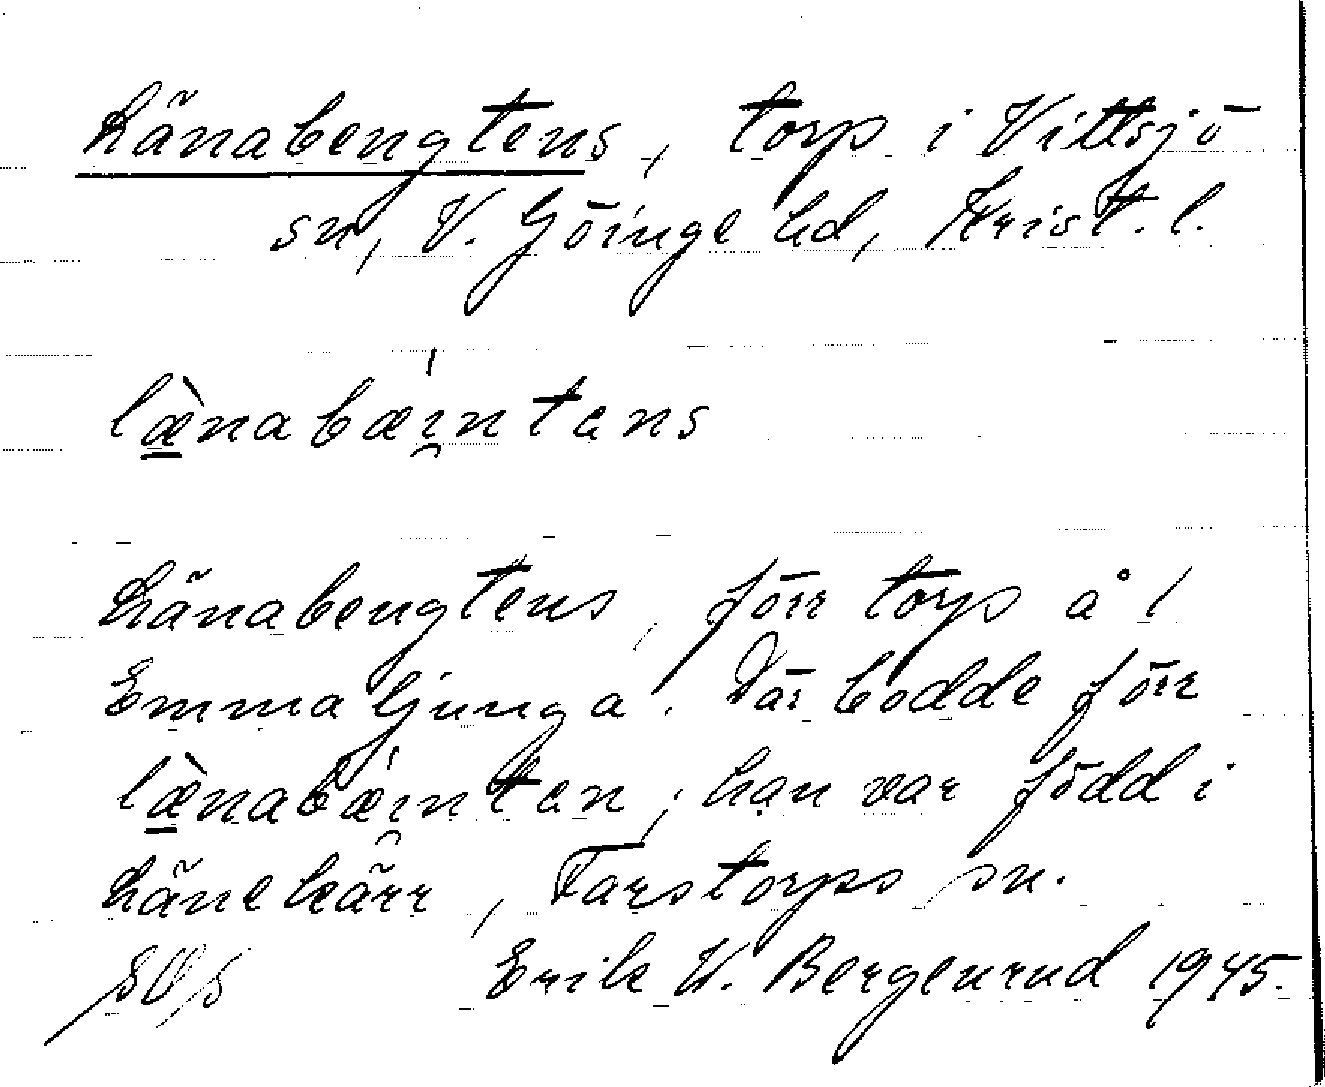 Länabengtens, torp i Vittsjö
sn, V. Göinge hd, Krist. l.
læ̀nabæi̯ntəns
Länabengtens, förr torp å 1
Emmaljunga. Där bodde förr
læ̀nabæi̯ntən; han var född i
Länekärr, Farstorps sn.
Erik W. Bergenrud 1945.